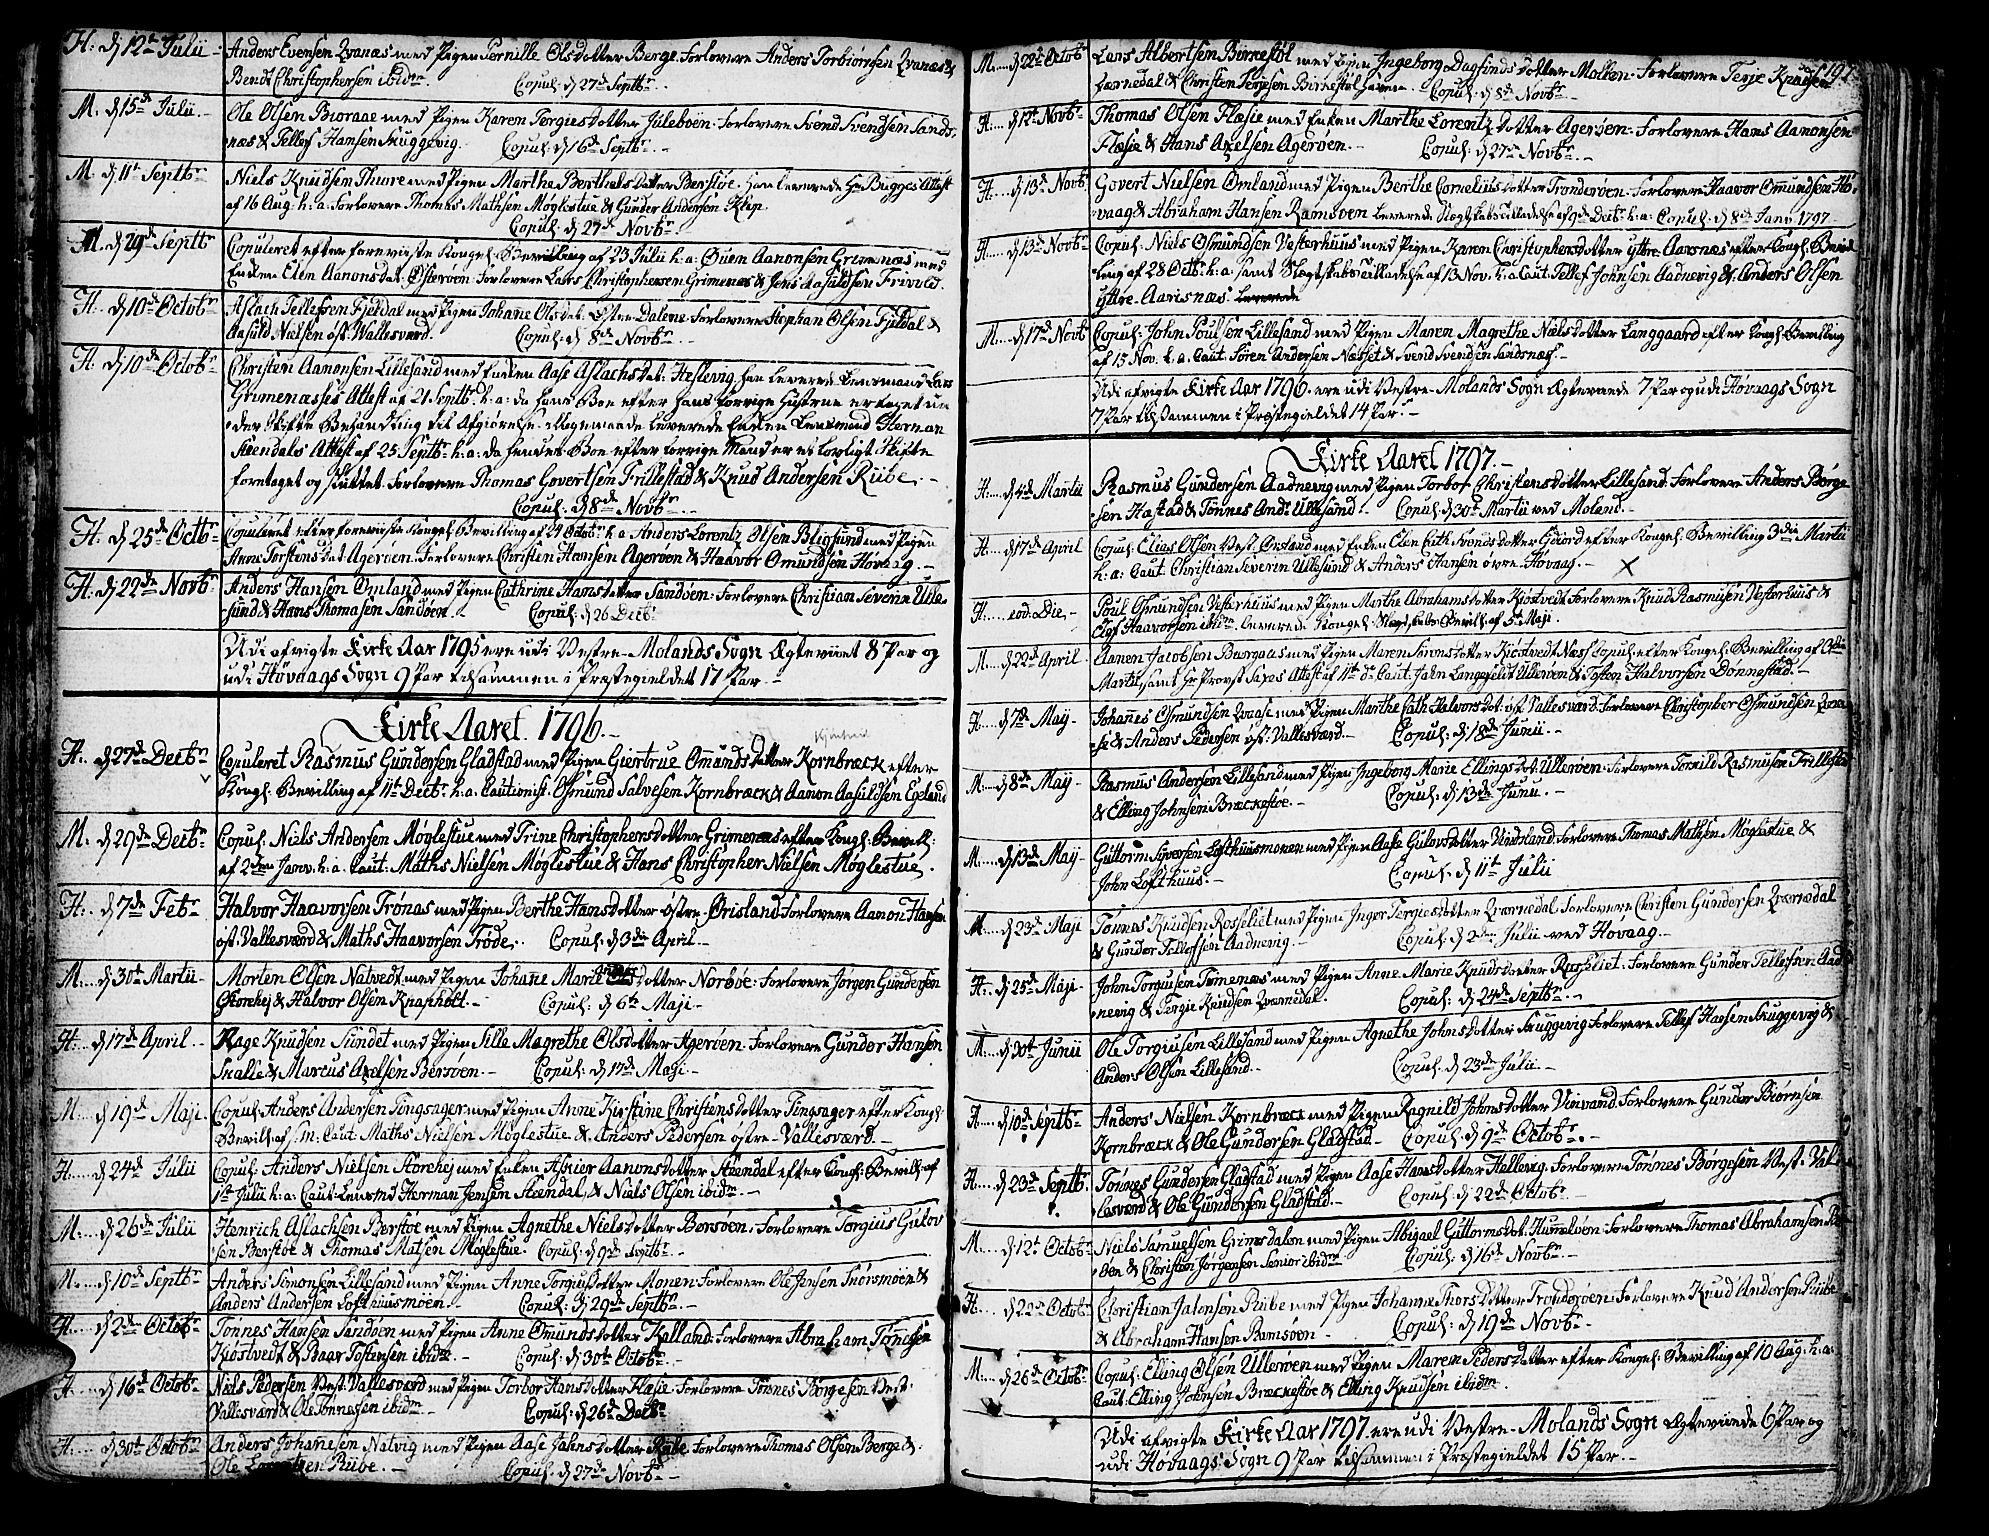 H: d 12te Julii - Anders Evensen Qvanæs med Pigen Pernille Olsdotter Berge. Forlovere Anders Torbiørnsen Qvanæs &
Bendt Christophersen ibidm. Copul: d 27de Septbr.
M. d 15de Julii. Ole Olsen Bioraae med Pigen Karen Tergiesdotter Juleboen. Forlovere Svend Svendsen Sands-
næs & Tellef Hansen Skuggevig. Copul: d 16de Septbr.
M. d 11te Septbr Niels Knudsen Thuore med Pigen Marthe Berthelsdotter Berstøe. Han leverede Hr Bugges Attest
af 16 Aug: h: a: Forlovere Thomas Mathsen Møglestue & Gunder Andersen Klep.
Copul: d 27de Novbr.
M. d 29de Septbr Copuleret efter foreviiste Kongel: Bevilling af 23 Julii h: a: Ouen Aanonsen Grimenæs med
Enken Elen Aanonsdat: Østerøen. Forlovere Lars Christophersen Grimenæs & Jens Aasuldsen Trivold.
H. d 10de Octobr Aslach Tellefsen Fjeldal med Pigen Johane Olsdat: Østen Dalene. Forlovere Stephan Olsen Fjeldal &
Aasuld Nielsen øst. Wallesværd. Copul: d 8de Novbr.
H. d 10de Octobr. Christen Aanonsen Lillesand med Enken Aase Aslachsdat: Heslevig, han leverede Lensmand Lars
Grimenæsses Attest af 21. Septbr. h: a: da hans Boe efter hans forrige Hustrue er taget un-
der Skifte Behandling til Afgiørelse. Ligemaade leverede Enken Lensmand Herman
Steendals Attest af 25 Septbr. h: a: da hendes Boe efter forrige Mand er et lovligt Skifte
foretaget og sluttet. Forlovere Thomas Govertsen Trillestad & Knud Andersen Rübe.
Copul: d 8de Novbr.
H. d 25de Octbr. Copuleret efter foreviiste Kongel: Bevilling af 21 Octobr. h: a Anders Lorentz Olsen Bligsund med Pigen
Anne Torstensdat: Agerøen. Forlovere Christen Hansen Agerøen & Haavor Omundsen Høvaag.
H: d 22de Novbr. Anders Hansen Omland med Pigen Cathrine Hansdotter Sandøen. Forlovere Christian Severin Ulle-
sund & Hans Thomasen Sandøen. Copul: d 26 Decbr.
Udi afvigte Kirke Aar 1795 ere udi Vestre-Molands Sogn Ægteviiet 8 Par og
udi Høvaags Sogn 9 Par tilsammen i Præstegieldet 17 Par.
Kirke Aaret 1796.
H: d 27de Decbr Copuleret Rasmus Gundersen Gladstad med Pigen Giertrue Omundsdotter Kornbræck efter
Kongel: Bevilling af 11te Decbr: h: a. Cautionist. Osmund Salvesen Kornbræck & Aanon Aasuldsen Egeland
M. d 29de Decbr. Copul: Niels Andersen Møglestue med Trine Christophersdotter Grimenæs efter Kongl: Bevill:
af 2den Janv: h: a: Caut: Maths Nielsen Møglestue & Hans Christopher Nielsen Møglestue.
H. d 7de Febr Halvor Haavorsen Trønæs med Pigen Berthe Hansdotter Østre-Ørisland. Forlovere Aanon Hansen
øst. Vallesværd & Maths Haavorsen Trøde. Copul: d 3die April.
M. d 30te Martii Morten Olsen Natvedt med Pigen Johane Marie dotter Norbøe. Forlovere Jørgen Gundersen
Storehej & Halvor Olsen Knapholt. Copul: d 6te Maji.
H. d 17de April Aage Knudsen Sundet med Pigen Sille Magrethe Olsdotter Agerøen. Forlovere Gunder Hansen
Skalle & Marcus Axelsen Bersøen. Copul: d 17de Maji.
M. d 19de Maji. Copul: Anders Andersen Tingsager med Pigen Anne Kirstine Christensdotter Tingsager efter Kongl:
Bevill: af s. m: Caut: Maths Nielsen Møglestue & Anders Pedersen østre-Vallesværd.
H. d 24de Julii Copul: Anders Nielsen Storehej med Enken Assier Aanonsdotter Steendal efter Kongl: Bevill: af
1te Julii h: a: Caut: Lensmd Herman Jensen Steendal & Niels Olsen ibidm.
M. d 26de Julii Henrich Aslachsen Berstøe med Pigen Agnethe Nielsdotter Borsøen. Forlovere Torgius Gulov-
sen Berstøe & Thomas Matsen Møglestue. Copul: d 9de Septbr.
M. d 10de Septbr. Anders Simonsen Lillesand med Pigen Anne Torgusdotter Monen. Forlovere Ole Jensen Snørsmoen &
Anders Andersen Lofthuusmoen. Copul: d 29de Septbr.
H. d 2den Octobr. Tønnes Hansen Sandøen med Pigen Anne Omundsdotter Kalland. Forlovere Abraham Tønnesen
Kiøstvedt & Baar Tostensen ibidm. Copul: d 30te Octobr.
H. d 16de Octobr. Niels Pedersen Vest. Vallesværd med Pigen Torbor Hansdotter Flæsie. Forlovere Tønnes Børgesen Vest.
Vallesværd & Ole Tønnesen ibidm. Copul: d 26de Decbr
H. d 30te Octobr. Anders Johannesen Natvig med Pigen Aase Jahnsdotter Rübe. Forlovere Thomas Olsen Berge &
Ole Rübe. Copul: d 27de Novbr.
197.
M. d 22de Octobr Lars Albertsen Birkestøl med Pigen Ingeborg Dagfindsdotter Molben. Forlovere Terje Knudsen
Lærnedal & Christen Terjesen Birkestøl Copul: d 8de Novbr.
H. d 12te Novbr. Thomas Olsen Flæsie med Enken Marthe Lorentzdotter Agerøen. Forlovere Hans Aanonsen
Flæsie & Hans Axelsen Agerøen. Copul: d 27de Novbr.
H. d 13de Novbr Govert Nielsen Omland med Pigen Berthe Corneliusdotter Trondørøen. Forlovere Haavor Omundsen Hø-
vaag & Abraham Hansen Ramsøen. Leverede Slægtskabs tilladelse af 9de Decbr: h: a: Copul: d 8de Janv 1797.
H. d 13de Novbr. Copul: Niels Osmundsen Vesterhuus med Pigen Karen Christophersdotter Yttre Aarsnæs efter Kongl: Bevil-
ling af 28 Octb: h: a: samt Slægtskabs tilladelse af 13 Nov: h: a. Caut: Tellef Johnsen Aadnevig & Anders Olsen
Yttre-Aarisnæs.
M. d 17de Novbr Copul: John Poulsen Lillesand med Pigen Maren Magrethe Nielsdotter Langgaard efter Kongl: Bevilling
af 15 Nov: h: a: Caut: Søren Andersen Næsset & Svend Svendsen Sandsnæs.
Udi afvigte Kirke Aar 1796. ere udi Vestre-Molands Sogn Ægteviede 7 Par og udi Høvaags Sogn
7 Par tilsammen i Præstegieldet 14 Par.
Kirke Aaret 1797.
H. d 4de Martii Rasmus Gundersen Aadnevig med Pigen Torbor Christensdotter Lillesand. Forlovere Anders Børge-
sen Hæstad & Tønnes And: Ullesund. Copul: d 30te Martii ved Moland.
H. d 17de April Copul: Elias Olsen Vest. Ørsland med Enken Elen Cath: Svendsdotter Giörd efter Kongel: Bevilling 3die Martii
h: a: Caut: Christian Severin Ullesund & Anders Hansen øvre-Høvaag. X
H. eod: Die. Poul Osmundsen Vesterhuus med Pigen Marthe Abrahamsdotter Kiøstvedt. Forlovere Knud Rasmusen Vesterhuus &
Oluf Haavorsen ibidm. leverede Kongel: Slægtskabs Bevill: af 5 Maji.
M. d 22de April Aanen Jacobsen Buregaas med Pigen Maren Simonsdotter Kiøstvedt Næs, Copul: efter Kongel: Bevilling af
Martii, samt Hr Provst Saxes Attest af 11te ds. Caut: Jahn Langefeldt Ullerøen & Tosten Halvorsen Dønnestad.
H. d 7de May. Johanes Osmundsen Qvaase med Pigen Marthe Cath: Halvorsdot: øst Vallesværd. Forlovere Christopher Osmundsen Qvaa-
se & Anders Pedersen øst: Vallesværd. Copul: d 18de Junii.
M. d 8de May Rasmus Andersen Lillesand med Pigen Ingeborg Marie Ellingsdot: Ullerøen. Forlovere Torkild Rasmusen Trillestad
& Elling Johnsen Bræckestøe. Copul: d 13de Junii.
M. d 13de May Guttorm Syversen Lofthuusmonen med Pigen Aase Gulovsdotter Vindsland. Forlovere Thomas Mathsen Møglestue &
John Lofthuus. Copul: d 11te Julii
M. d 23de Maji Tønnes Knudsen Rosseliet med Pigen Inger Tergiesdotter Qværnedal. Forlovere Christen Gundersen Qværnedal
& Gunder Tellefsen Aadnevig. Copul: d 2den Julii ved Høvaag.
H. d 25de Maji John Torgiusen Tømenæs med Pigen Anne Marie Knudsdotter Rosseliet. Forlovere Gunder Tellefsen Aad-
nevig & Tergie Knudsen Qværnedal. Copul: d 24de Septbr.
M. d 30te Junii Ole Torgiusen Lillesand med Pigen Agnethe Johnsdotter Skuggevig. Forlovere Tellef Hansen Skuggevig &
Anders Olsen Lillesand. Copul: d 23de Julii.
H. d 10de Septbr. Anders Nielsen Kornbræck med Pigen Ragnild Johnsdotter Vinvand. Forlovere Gunder Biørnsen
Kornbræck & Ole Gundersen Gladstad. Copul: d 9de Octobr.
H. d 23de Septbr. Tønnes Gundersen Gladstad med Pigen Aase Hansdotter Hellevig. Forlovere Tønnes Børgesen Vest. Val-
lesværd & Ole Gundersen Gladstad. Copul: d 22de Octobr.
M. d 12te Octobr Niels Samuelsen Grimsdalen med Pigen Abigael Guttormsdot: Humeløen. Forlovere Thomas Abrahamsen
& Christen Jørgensen Senior ibidm Copul: d 16de Novbr.
H. d 22de Octobr Christian Jahnsen Rübe med Pigen Johanne Thorsdotter Trondørøen. Forlovere Knud Andersen Rübe
& Abraham Hansen Ramsøen. Copul: d 19de Novbr.
M. d 26de Octobr. Copul: Elling Olsen Ullerøen med Pigen Maren Pedersdotter efter Kongel: Bevilling af 10 Aug: h: a:
Caut: Elling Johnsen Bræckestøe & Elling Knudsen ibidm.
Udi afvigte Kirke Aar 1797. ere udi Vestre-Molands Sogn Ægteviede 6 Par og
udi Høvaags Sogn 9 Par tilsammen i Præstegieldet 15 Par.